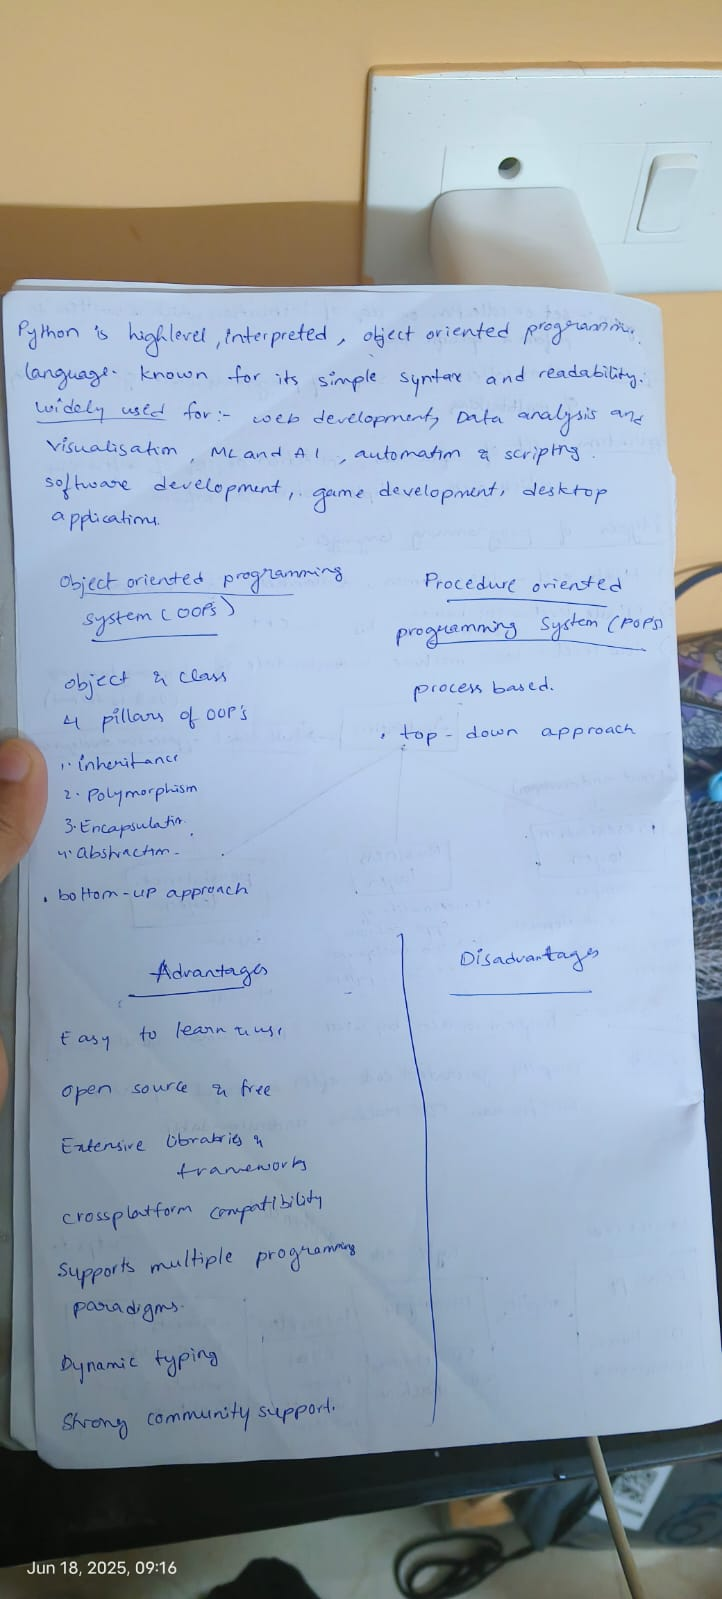 Python is highlevel, interpreted, object oriented programming
language. known for its simple syntax and readability.
widely used for:- web development, Data analysis and
visualisation, ML and AI, automation & scripting.
software development, game development, desktop
applications.
Object oriented programming
system (OOPs)
object & class
4 pillars of OOP's
1. inheritance
2. Polymorphism
3. Encapsulation.
4. Abstraction.
. bottom-up approach
Procedure oriented
programming System (POPS)
process based.
. top-down approach
Advantages
Easy to learn & use
open source & free
Extensive librabries &
frameworks
crossplatform compatibility
Supports multiple programming
paradigms.
Dynamic typing
Strong community support.
Disadvantages
Jun 18, 2025, 09:16